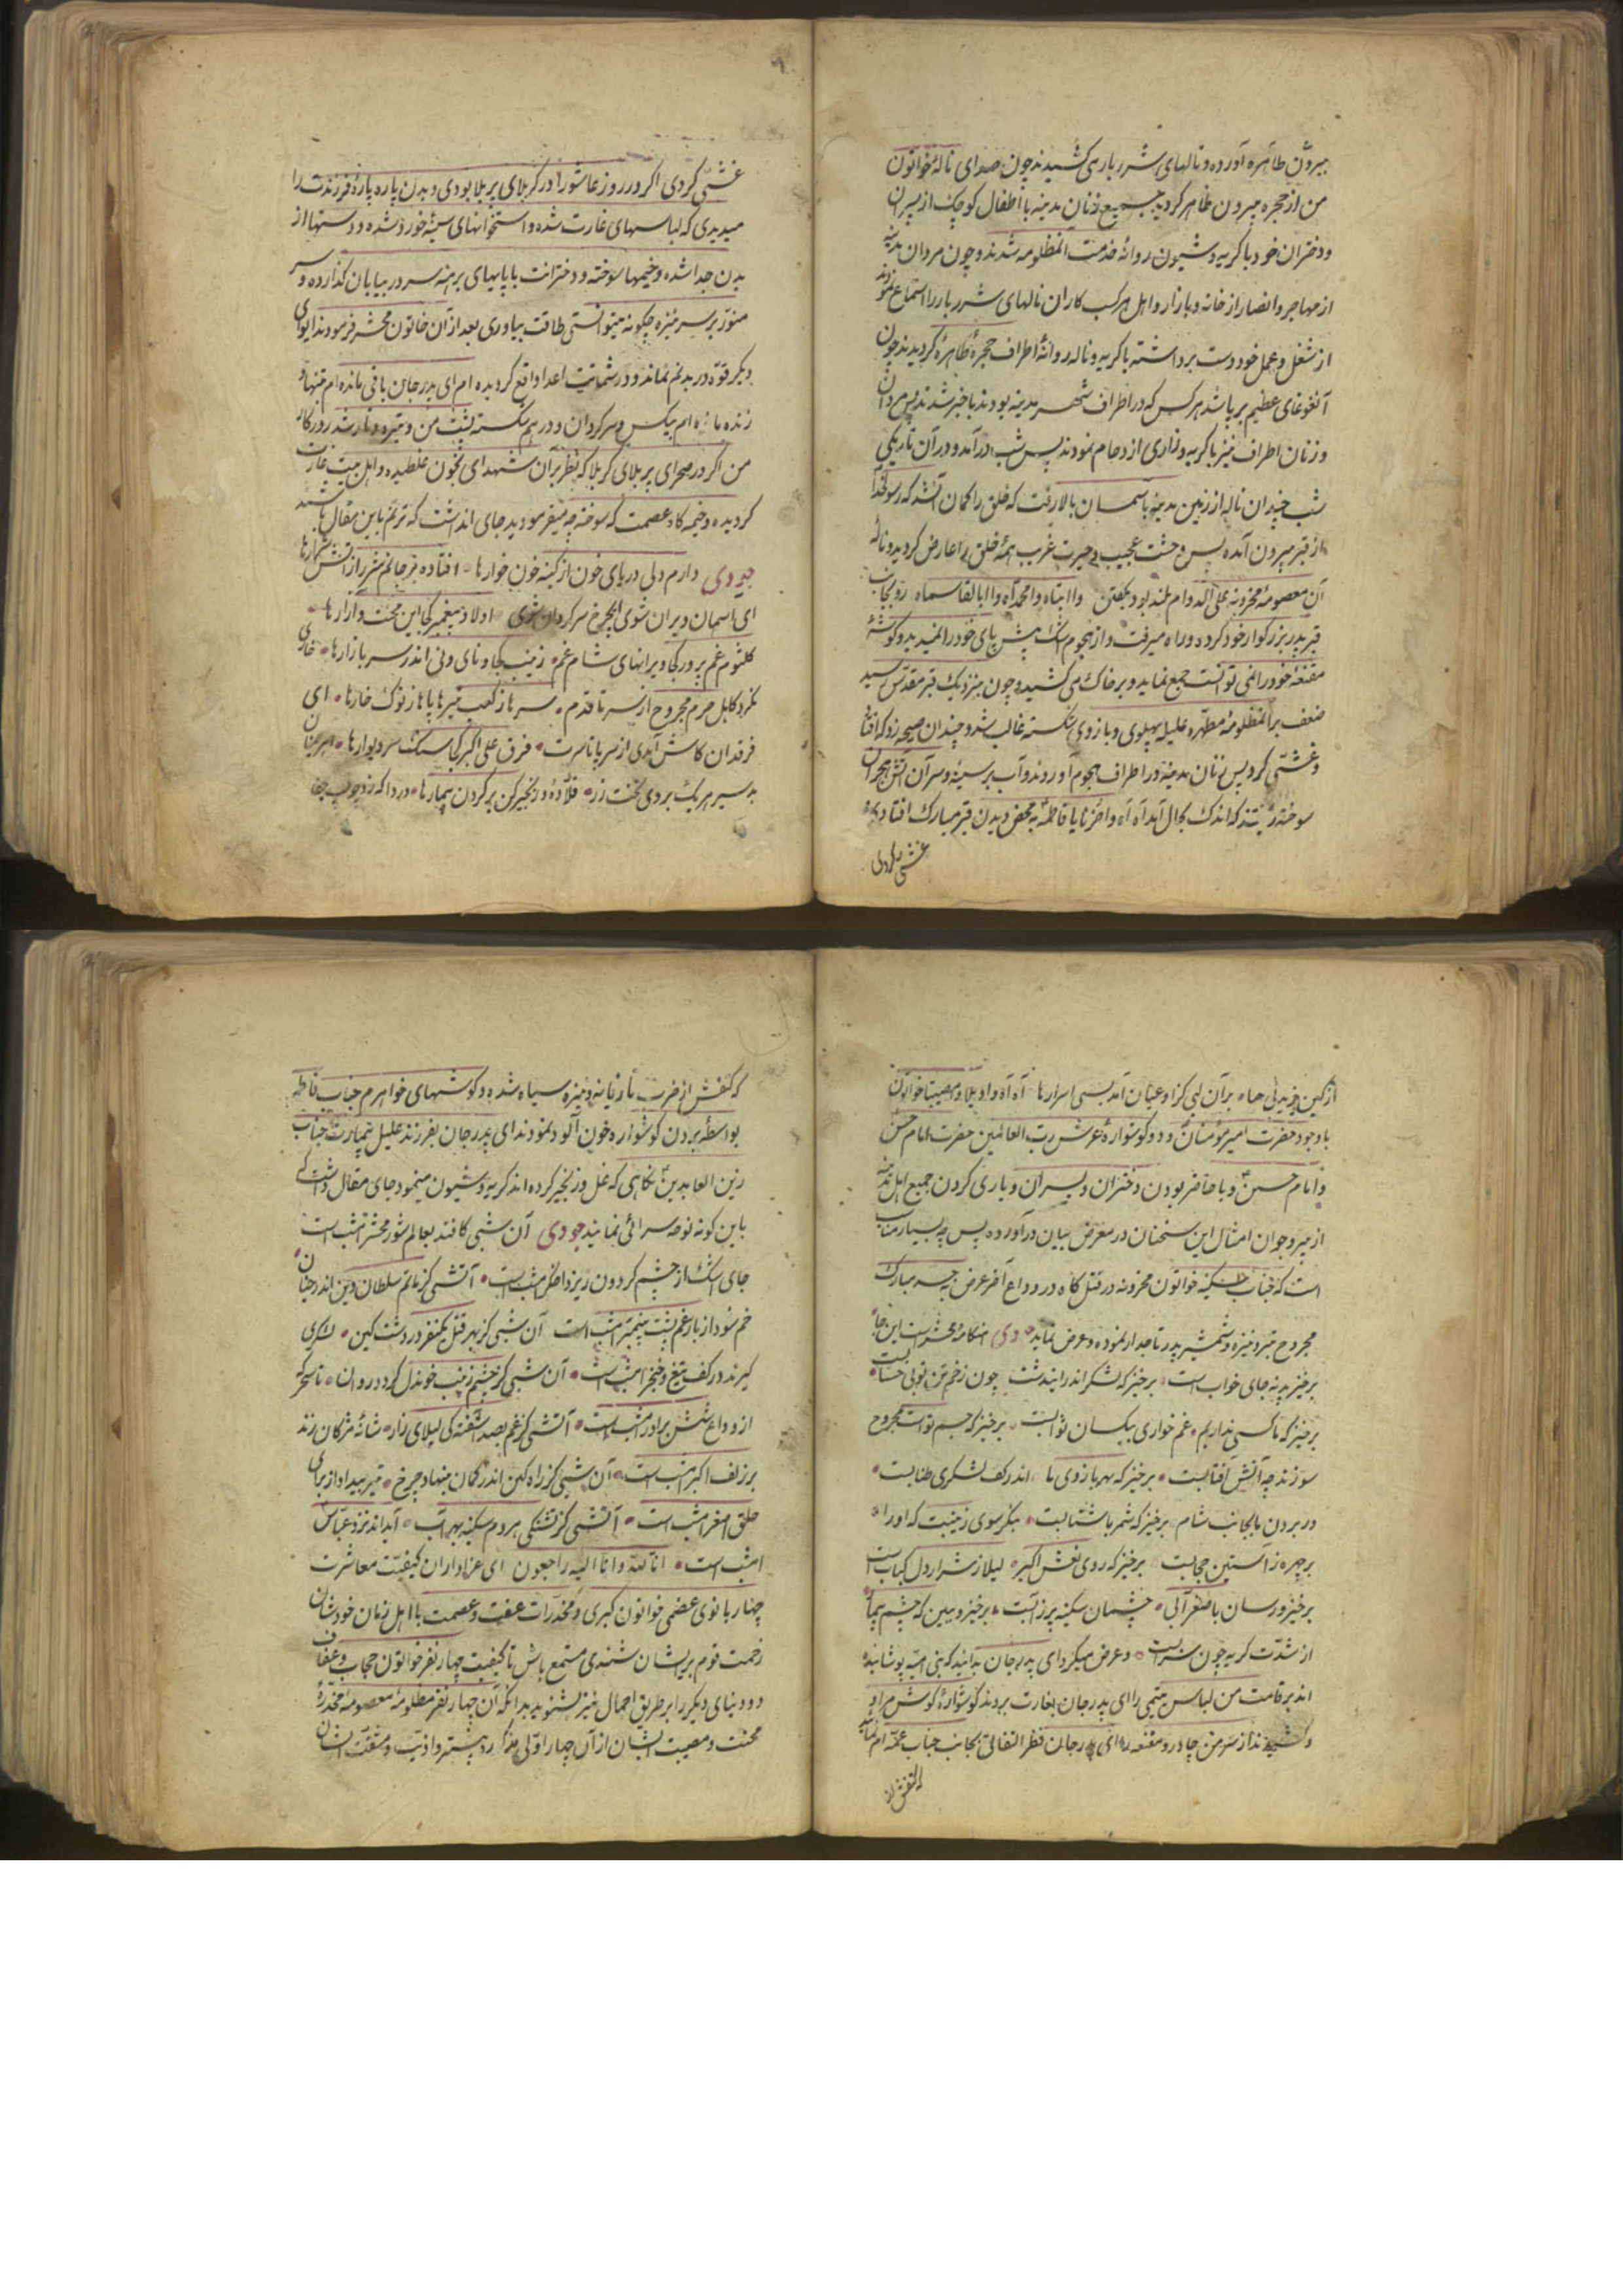 بیرون طاهره آورده و نالهای شرربار می کشیدند چون صدای نالهٔ خواتون
من از حجره بیرون ظاهر کردید جمیع زنان مدینه با اطفال کوچک از پسران
و دختران خود با کریه و شیون روانهٔ خدمت آنمظلومه شدند و چون مردان مدینه
از مهاجر و انصار از خانه و بازار و اهل هر کسب کاران نالهای شرربار را استماع نمودند
از شغل و عمل خود دست برداشته با کریه و ناله روانهٔ اطراف حجرهٔ طاهره کردیدند چون
آنغوغای عظیم برپا شد هر کس که در اطراف شهر مدینه بودند باخبر شدند پس مردان
و زنان اطراف نیز با کریه و زاری ازدحام نمودند پس شب درآمد و در آن تاریکی
شب چندان ناله از زمین مدینه بآسمان بالا رفت که خلق را کمان آنشد که رسولخدا
از قبر بیرون آمده پس وحشت عجیب و حیرت غریب همهٔ خلق را عارض کردید و نالهٔ
آن معصومهٔ محزونه علی الدوام بلند بود و بکفتن وا ابتاه وا محمداه وا ابا القاسماه رو بجانب
قبر پدر بزرکوار خود کرده و راه میرفت و از هجوم اشک پیش پای خود را نمیدید و کوشهٔ
مقنعهٔ خود را نمی توانست جمع نماید و بر خاک می کشید و چون بنزدیک قبر مقدس رسید
ضعف بر آنمظلومهٔ مطهره علیله پهلوی و بازوی شکسته غالب شد و چندان صیحه زد که افتاد
و غشی کرد پس زنان مدینه در اطراف هجوم آوردند و آب بر سینه و سر آن آتش هجران
سوخته ریختند که اندک بحال آید آه آه واحزنا یا فاطمه به محض دیدن قبر مبارک افتادی و
غشی کردی
غشی کردی اکر در روز عاشورا در کربلای پربلا بودی و بدن پاره پارهٔ فرزندت را
میدیدی که لباسهای غارت شده و استخوانهای سینهٔ خورد شده و دستها از
بدن جدا شده و خیمها سوخته و دخترانت با پایهای برهنه سر در بیابان کذارده و سر
منور بر سر نیزه چکونه میتوانستی طاقت بیاوری بعد از آن خاتون محشر فرمودند ایوای
دیکر قوه در بدنم نماند و در شماتت اعدا واقع کردیده ام ای پدر جان باقی مانده ام تنها و
زنده مانده ام بیکس و سرکردان و درهم شکسته پشت من و تیره و تار شد روزکار
من اکر در صحرای پربلای کربلا که نظر بر آن شهدای بخون غلطیده و اهل بیت غارت
کردیده و خیمه کاه عصمت که سوخته چه میفرمودید جای اندشت که ترنم باین مقال باشید
جودی دارم دلی دریای خون از کینه خون خوارها افتاده بر جانم شرر از آتش شرارها
ای اسمان ویران شوی ایچرخ سرکردان شوی اولاد پیغمبر کجا این محنت و آزارها
کلثوم غم پرور کجا ویرانهای شام غم زینب کجا و نای و نی اندر سر بازارها خاری
نکرد کابل حرم مجروح از سر تا قدم سرها ز کعب نیرها پاها ز نوک خارها ای
فرقدان کاش آمدی از سر بپا تا سرت فرق علی اکبر کجا سنک سر دیوارها
بد سیر هر یک بر دی تخت زر قلاده و زنجیر کن بر کردن بیمارها دردا که زد چوب جفا
از کین یزید بی حیا بر آن لبی کز او عیان آمد بسی اسرارها آه آه واویلا وامصیبتا خواتون
با وجود حضرت امیرمؤمنان و دو کوشوارهٔ عرش رب العالمین حضرت امام حسن
و امام حسین و با حاضر بودن دختران و پسران و یاری کردن جمیع اهل مدینه
از پیر و جوان امثال این سخنان در معرض بیان درآورده پس چه بسیار مناسب
است که جناب سکینه خواتون محزونه در قتل کاه در وداع آخر عرض به جسد مبارک
مجروح تیر و نیزه و شمشیر پدر تاجدار نموده و عرض نماید جودی هنکامهٔ محشرست این جا
برخیز پدر نه جای خوابست برخیز که لشکر اندر ایندشت چون زخم تن تو بی حسابست
برخیز که ما کسی نداریم غم خواری بیکسان ثوابست برخیز که جسم تو است مجروح
سوزنده چه آتش آفتابست برخیز که بهر بازوی ما اندر کف لشکری طنابست
در بردن ما بجانب شام برخیز که شمر با شتابست بنکر سوی زینبت که او را
بر چهره ز آستین حجابست برخیز که روی نعش اکبر لیلا ز شرار دل کبابست
برخیز و رسان باصغر آبی چشمان سکینه پر ز آبست برخیز و ببین که چشم بیمار
از شدت کریه چون سرابست و عرض میکرد ای پدر جان بدانند که بنی امیه پوشانیده
اند بر قامت من لباس یتیمی را ای پدر جان بغارت بردند کوشوارهٔ کوش مرا و
و کشیدند از سر من چادر و مقنعه را ای پدر جان نظر التفاتی بجانب جناب عمه ام نمائید
که کتفش از
که کتفش از ضرب تازیانه و نیزه سیاه شده و کوشهای خواهرم جناب فاطمه
بواسطهٔ بردن کوشواره خون آلود نمودند ای پدر جان بفرزند علیل بیمارت جناب
زین العابدین نکاهی که غل و زنجیر کرده اند کریه و شیون مینمود جای مقال داشت که
باین کونه نوحه سرائی نمایند جودی آن شبی کافتد بعالم شور محشر امشب است
جای اشک از چشم کردون ریزد اختر امشب است آنشبی کز ماتم سلطان دین اندر جنان
خم شود از بار غم پشت پیمبر امشب است آن شبی کز بهر قتل یکنفر در دشت کین لشکری
کیرند در کف تیغ و خنجر امشب است آن شبی کز چشم زینب خوندل کردد روان تا سحر که
از وداع شش برادر امشب است آنشبی کز غم بصد آشفتکی لیلای زار شانهٔ مژکان زند
بر زلف اکبر امشب است آن شبی کز راه کین اندر کمان بنهاد چرخ تیر بیداد از برای
حلق اصغر امشب است آنشبی کز تشنکی هر دم سکینه بهر آب آید اندر نزد عباس
امشب است انا لله و انا الیه راجعون ای عزاداران کیفیت معاشرت
چهار بانوی عضمی خواتون کبری و مخدرات عفت و عصمت با اهل زمان خودشان
زحمت قوم بریشان شنیدی مستمع باش تا کیفیت چهار نفر خواتون حجاب و عفاف
دو دنیای دیکر را بر طریق اجمال نیز بشنوید بدانکه آن چهار نفر مظلومهٔ معصومهٔ مخدرهٔ
محنت و مصیبت ایشان از آن چهار اولی مذکور بیشتر و اذیت و مشقت ایشان